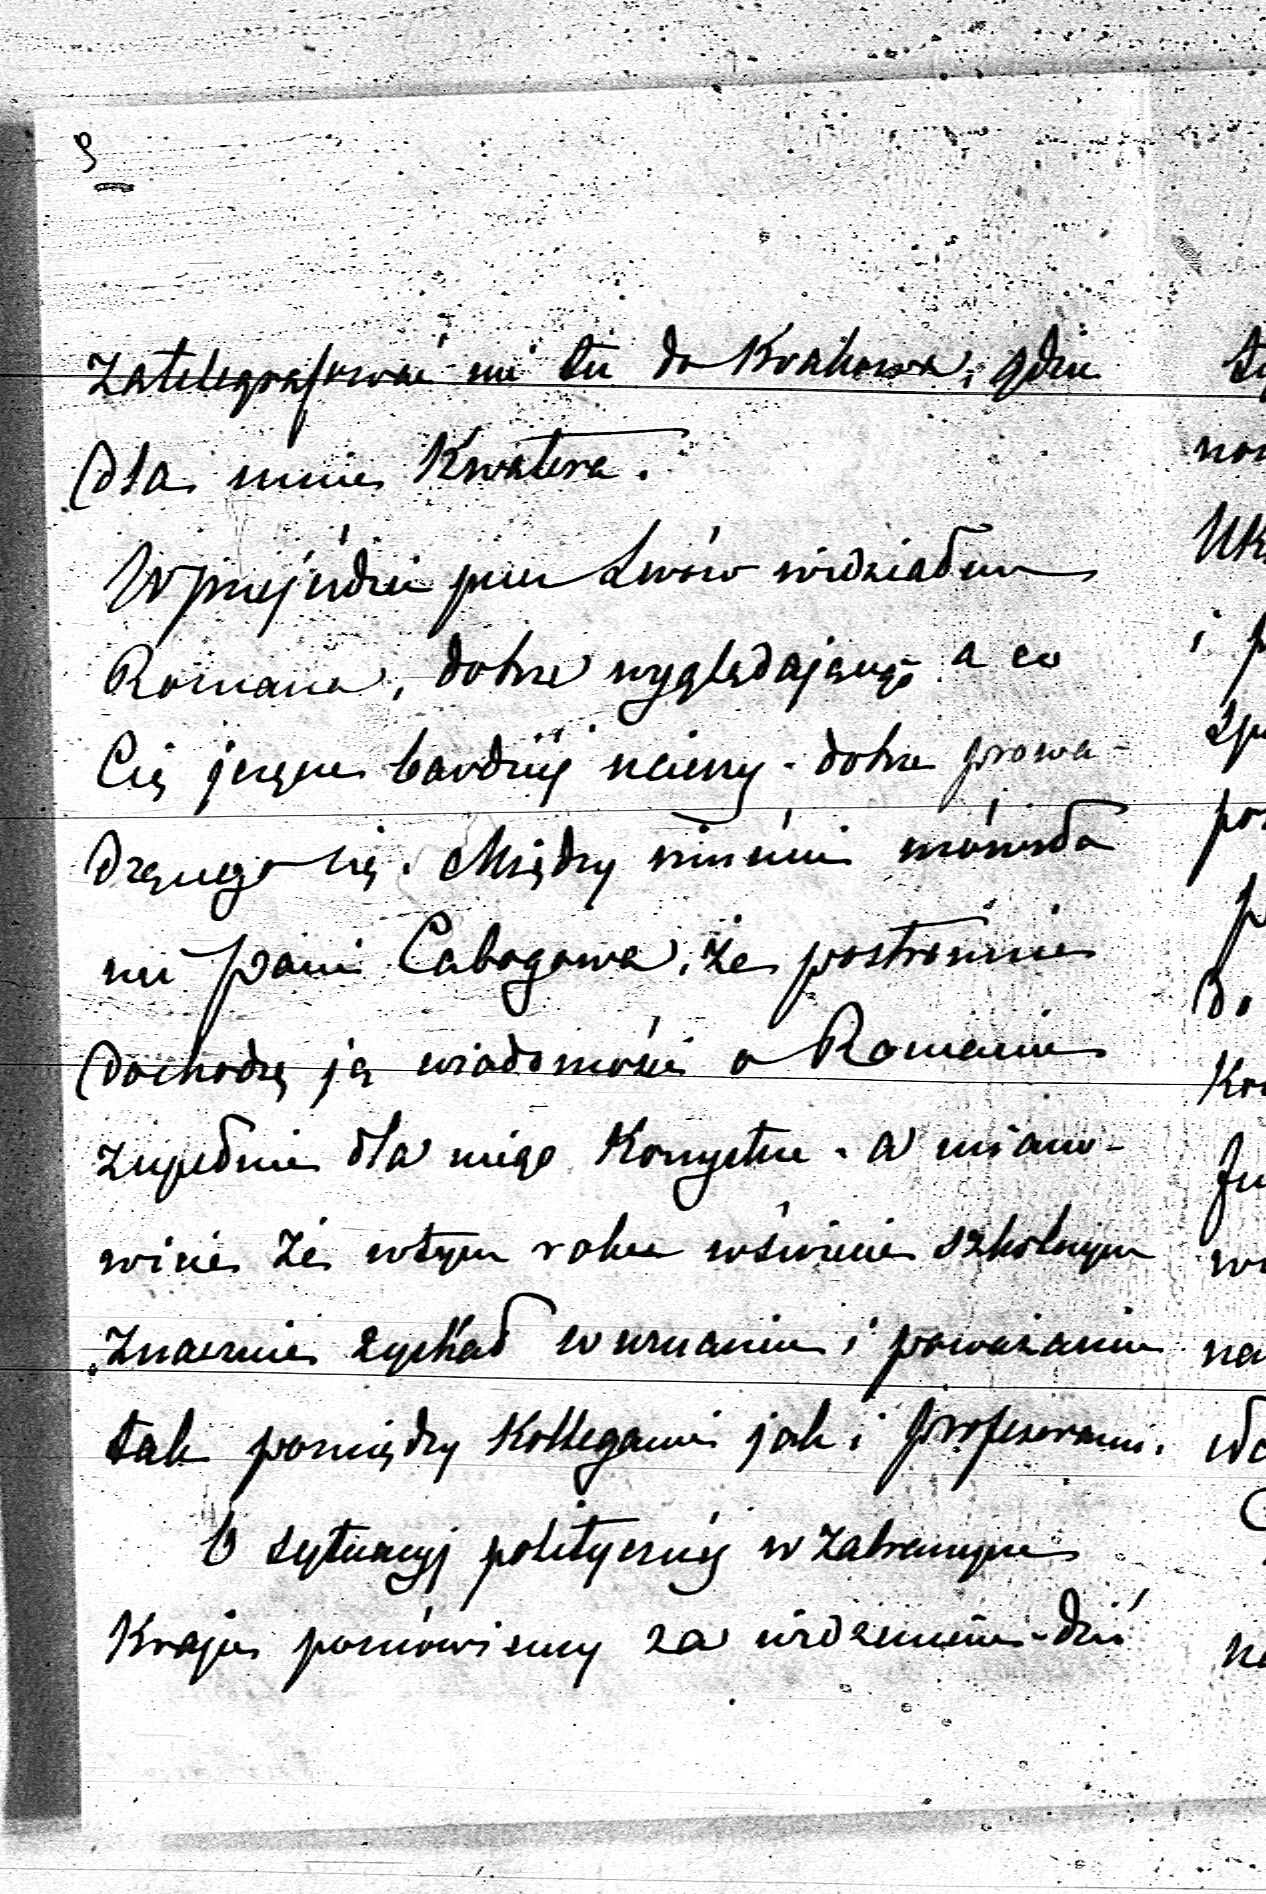 9
zatelegrafować mi tu do Krakowa, gdzie
dla mnie Kwatera.
W przejeździe przez Lwów widziałem
Romana, dobrze wyglądającego a co
Cię jeszcze bardziej ucieszy - dobrze prowa-
dzącego się. Między innémi mówiła
mi pani Cabogowa, że postronnie
dochodzą ją wiadomości o Romanie
zupełnie dla niego Korzystne - a miano-
wicie że wtym roku wświecie szkolnym
znacznie zyskał w uznaniu i poważaniu
tak pomiędzy Kollegami jak i profesorami.
O sytuacyj politycznej w zabranym
Kraju pomówiemy za widzeniem - dziś